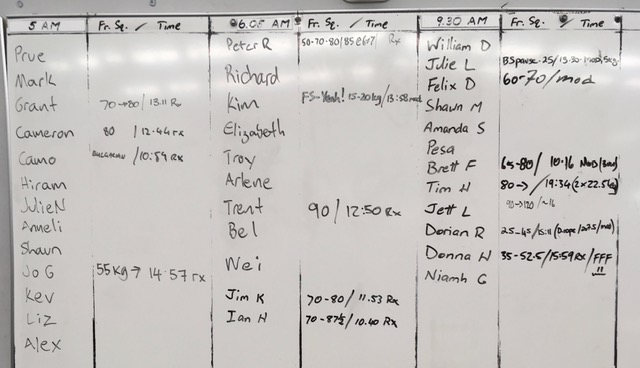 5 AM Fr. Sq. / Time
Prue
Mark
Grant 70→80 / 13.11 Rx
Cameron 80 / 12.44 rx
Camo / 10:59 Rx
Hiram
Julie N
Anneli
Shaun
Jo G 55kg → 14:57 rx
Kev
Liz
Alex
6.05 AM Fr. Sq. / Time
Peter R 50-70-80/85 Rx
Richard
Kim FS-Yeah! 15-20kg / 13:58 mod
Elizabeth
Troy
Arlene
Trent 90 / 12:50 Rx
Bel
Wei
Jim K 70-80 / 11.53 Rx
Ian H 70-87½ / 10.40 Rx
9.30 AM Fr. Sq. / Time
William D
Julie L BS pause-25 / 13:30 mod/5kg
Felix D 60-70 / mod
Shawn M
Amanda S
Pesa
Brett F 65-80 / 10.16 Mod
Tim H 80→ / 19:34 (2x22.5kg)
Jett L
Dorian R 25-45 / 15:11
Donna H 35-52.5 / 15:59 Rx / FFF !!
Niamh G